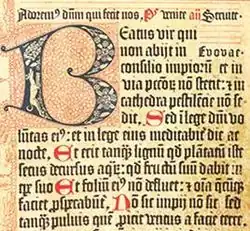 Adorem⁹ dūm qui fecit nos, Ps̄ venite añ Servite.
Beatus vir qui
non abijt in Evovae
consilio impiorū et in
via pctōꝝ nō stetit: et in
cathedra pestilēcie nō se-
dit. Sed ī lege dn̄i vo-
lūtas ei⁹: et in lege eius meditabit̄ die ac
nocte. Et erit tanqȝ lignū qd̄ plātatū iuxta
secus decursus aqꝝ: qd̄ fructū suū dabit in
tꝑe suo Et foliū ei⁹ nō defluet: et oīa qēcūqȝ
faciet ꝓsperabūt̄. Nō sic impij nō sic sed
tanqȝ puluis quē proicit ventus a facie terre.